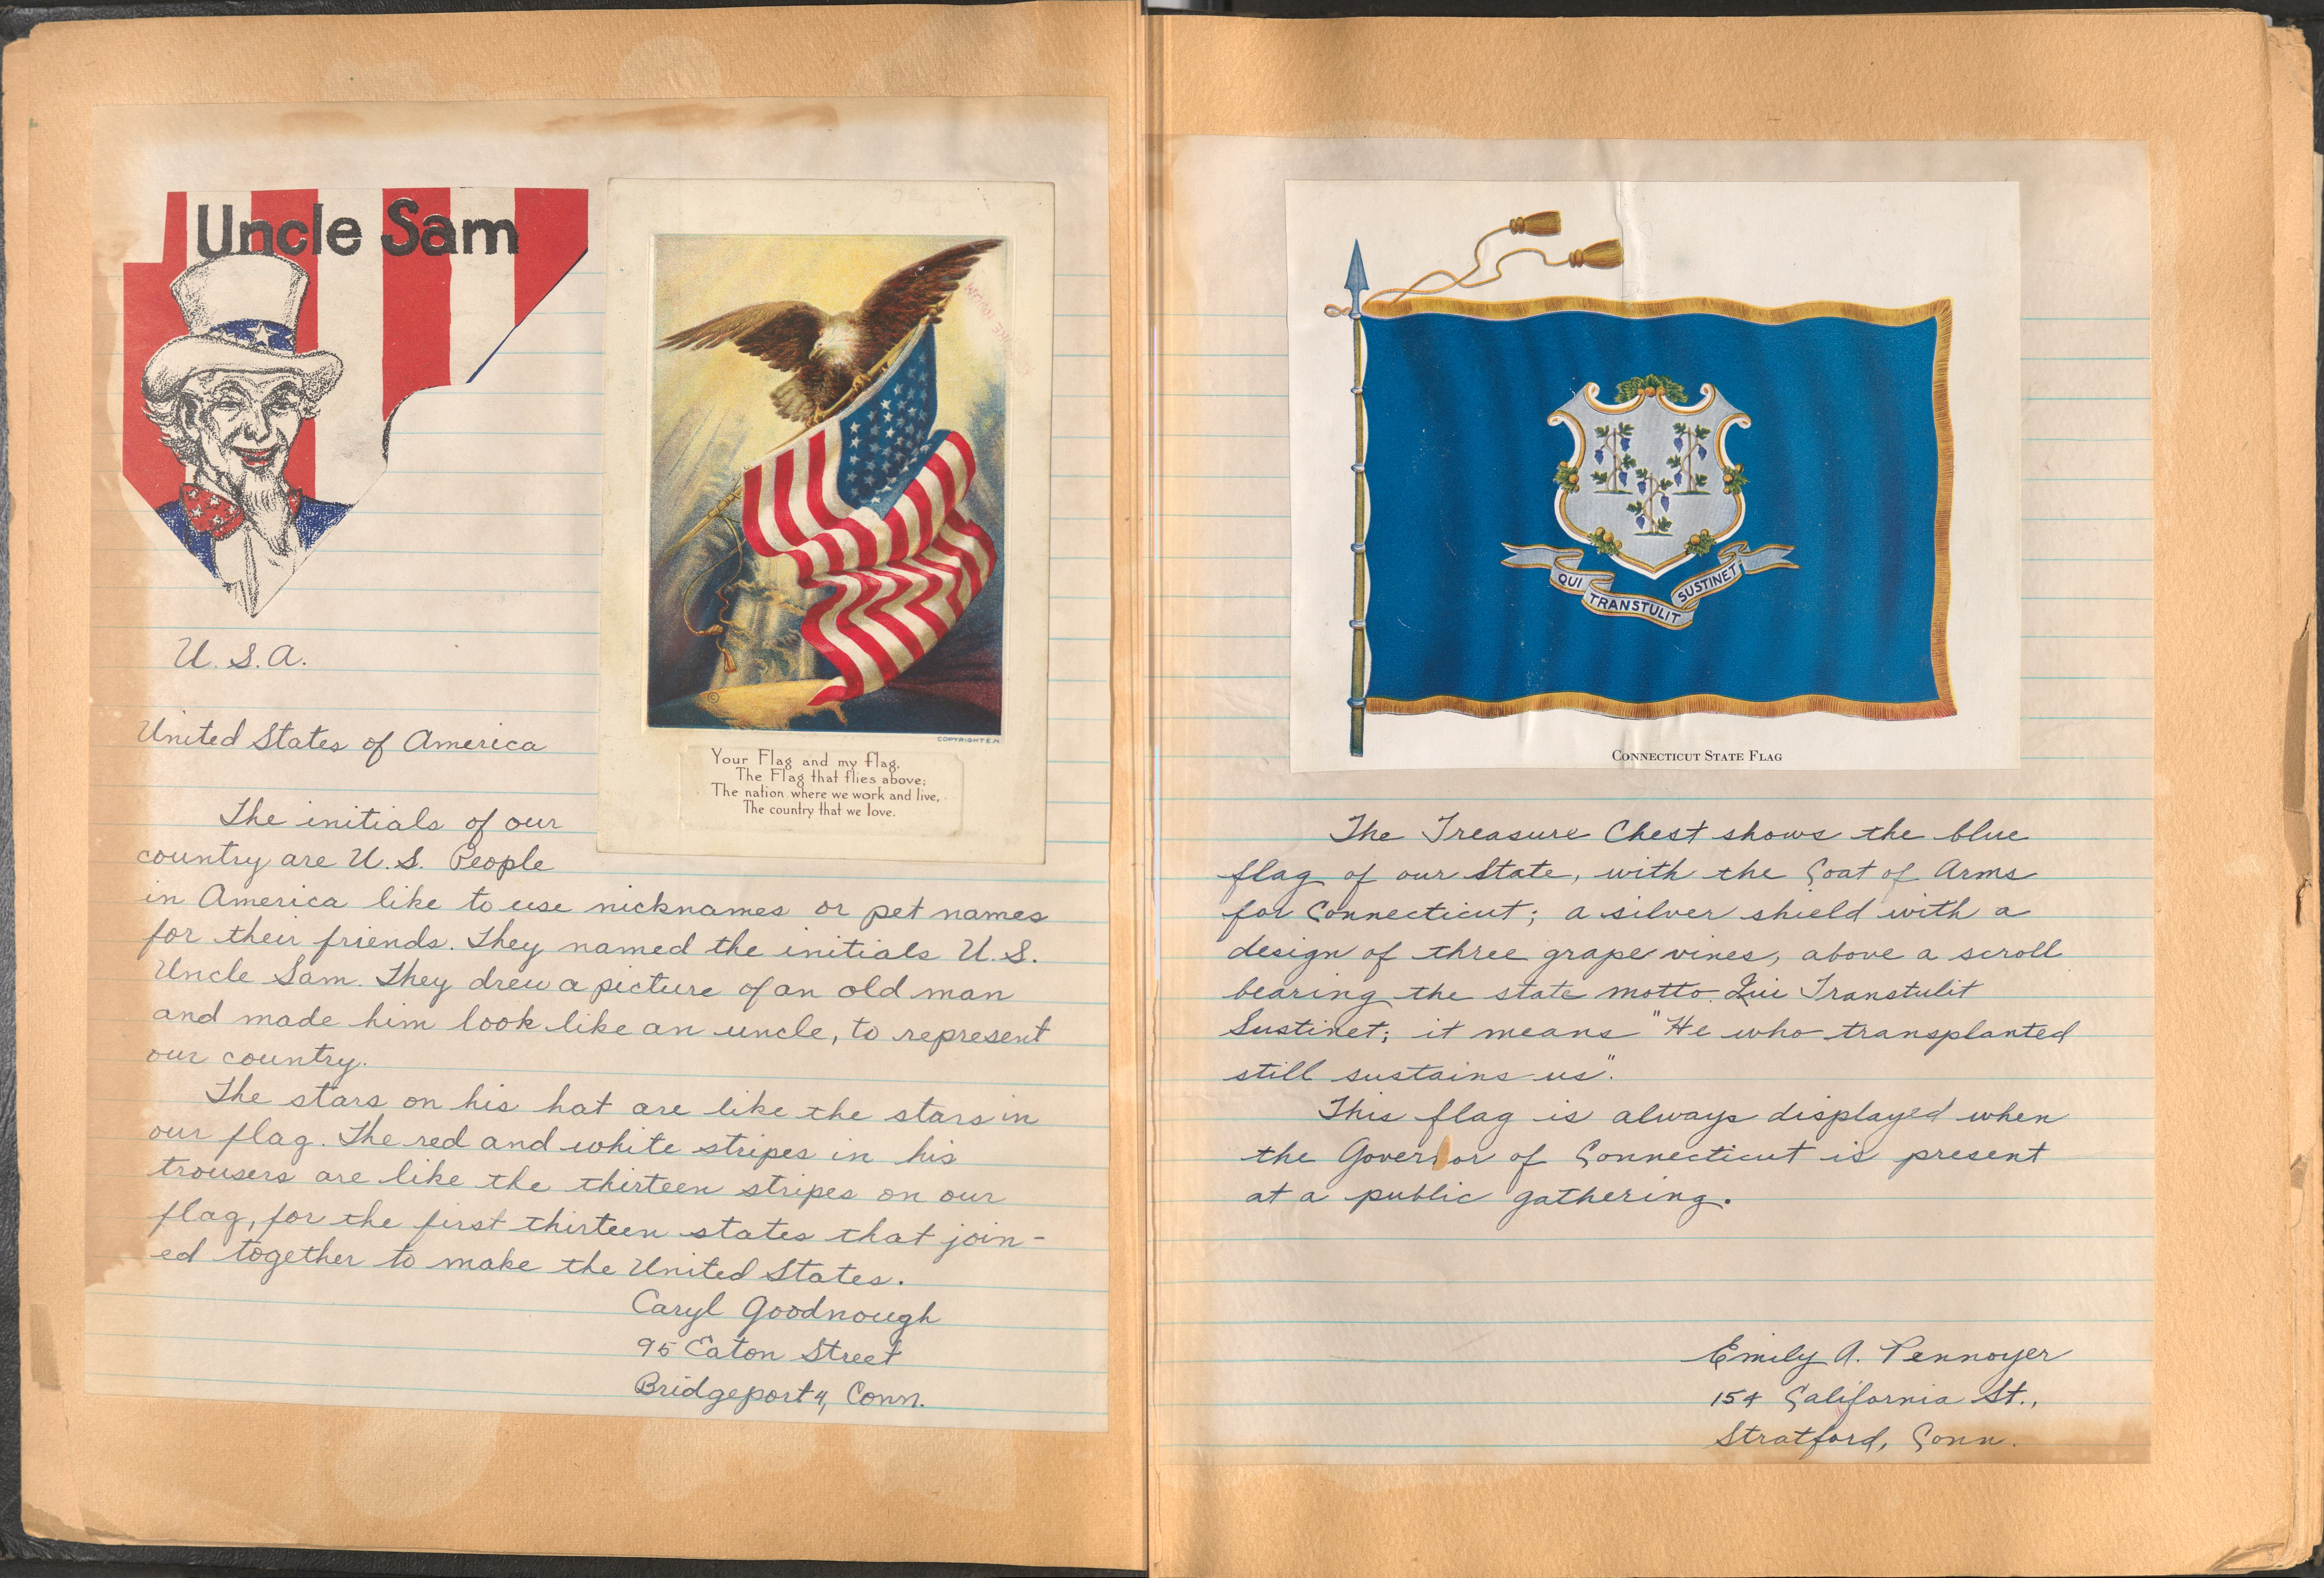 Uncle Sam
COPYRIGHT E.N.
Your Flag and my flag,
The Flag that flies above;
The nation where we work and live,
The country that we love.
U.S.A.
United States of America
The initials of our
country are U.S. People
in America like to use nicknames or pet names
for their friends. They named the initials U.S.
Uncle Sam. They drew a picture of an old man
and made him look like an uncle, to represent
our country.
The stars on his hat are like the stars in
our flag. The red and white stripes in his
trousers are like the thirteen stripes on our
flag, for the first thirteen states that join-
ed together to make the United States.
Caryl Goodnough
95 Eaton Street
Bridgeport 4, Conn.
QUI TRANSTULIT SUSTINET
CONNECTICUT STATE FLAG
The Treasure Chest shows the blue
flag of our State, with the Coat of Arms
for Connecticut; a silver shield with a
design of three grape vines, above a scroll
bearing the state motto Qui Transtulit
Sustinet; it means "He who transplanted
still sustains us".
This flag is always displayed when
the Governor of Connecticut is present
at a public gathering.
Emily A. Pennoyer
154 California St.,
Stratford, Conn.